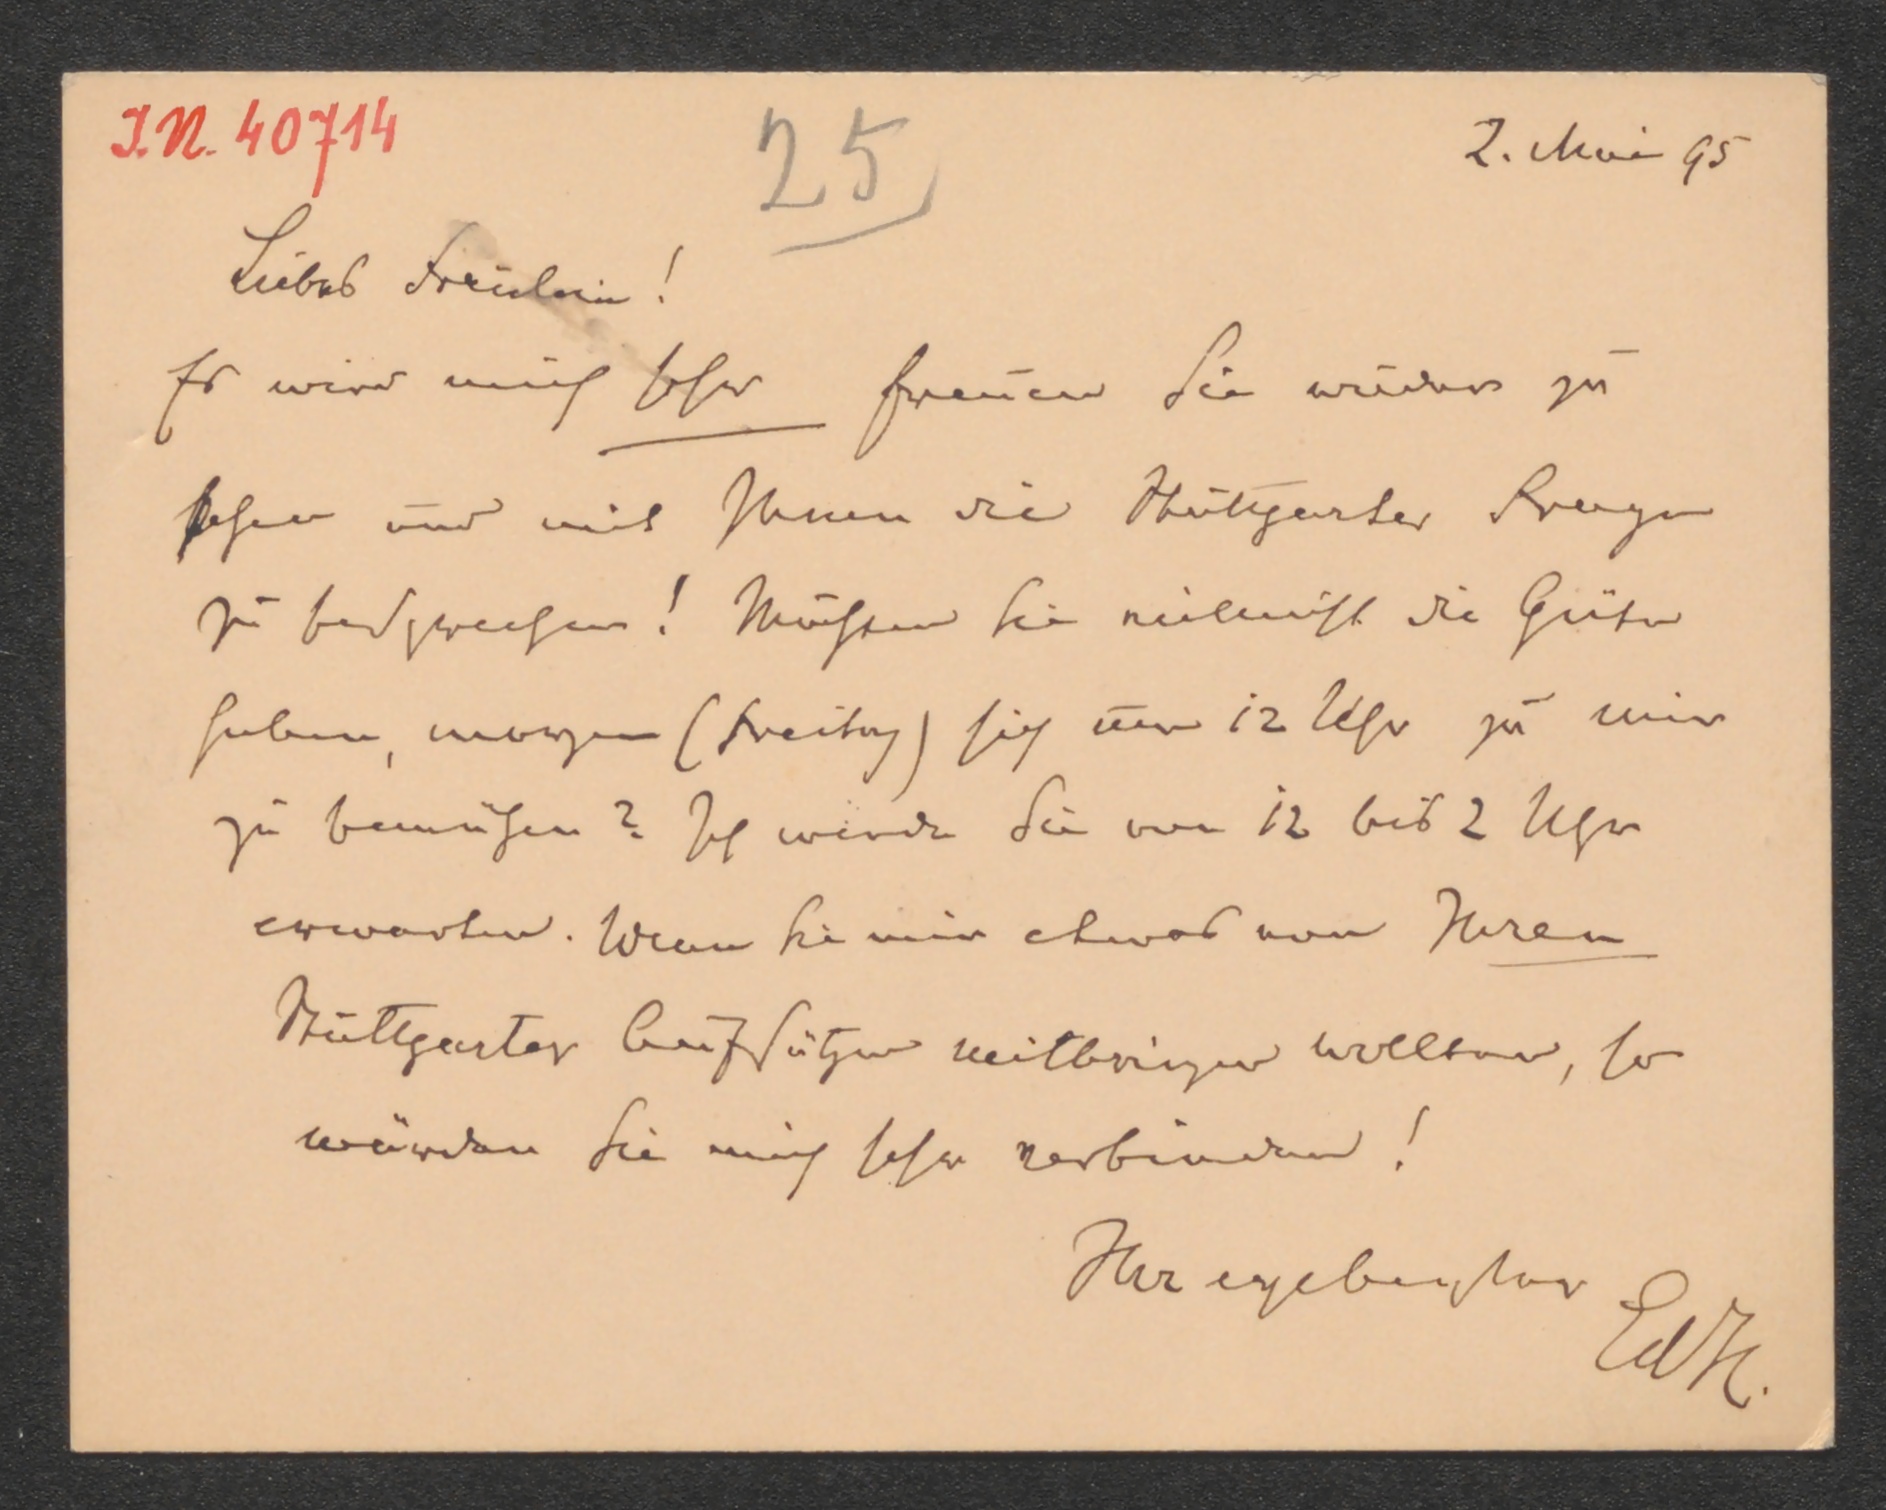 I.N. 40714
25
2. Mai 95
Liebes Fräulein!
Es wird mich sehr freuen Sie wieder zu
sehen und mit Ihnen die Stuttgarter Frage
zu besprechen! Möchten Sie vielleicht die Güte
haben, morgen (Freitag) sich um 12 Uhr zu mir
zu bemühen? Ich werde Sie von 12 bis 2 Uhr
erwarten. Wenn Sie mir etwas von Ihren
Stuttgarter Aufsätzen mitbringen wollten, so
würden Sie mich sehr verbinden!
Ihr ergebenster
EdH.